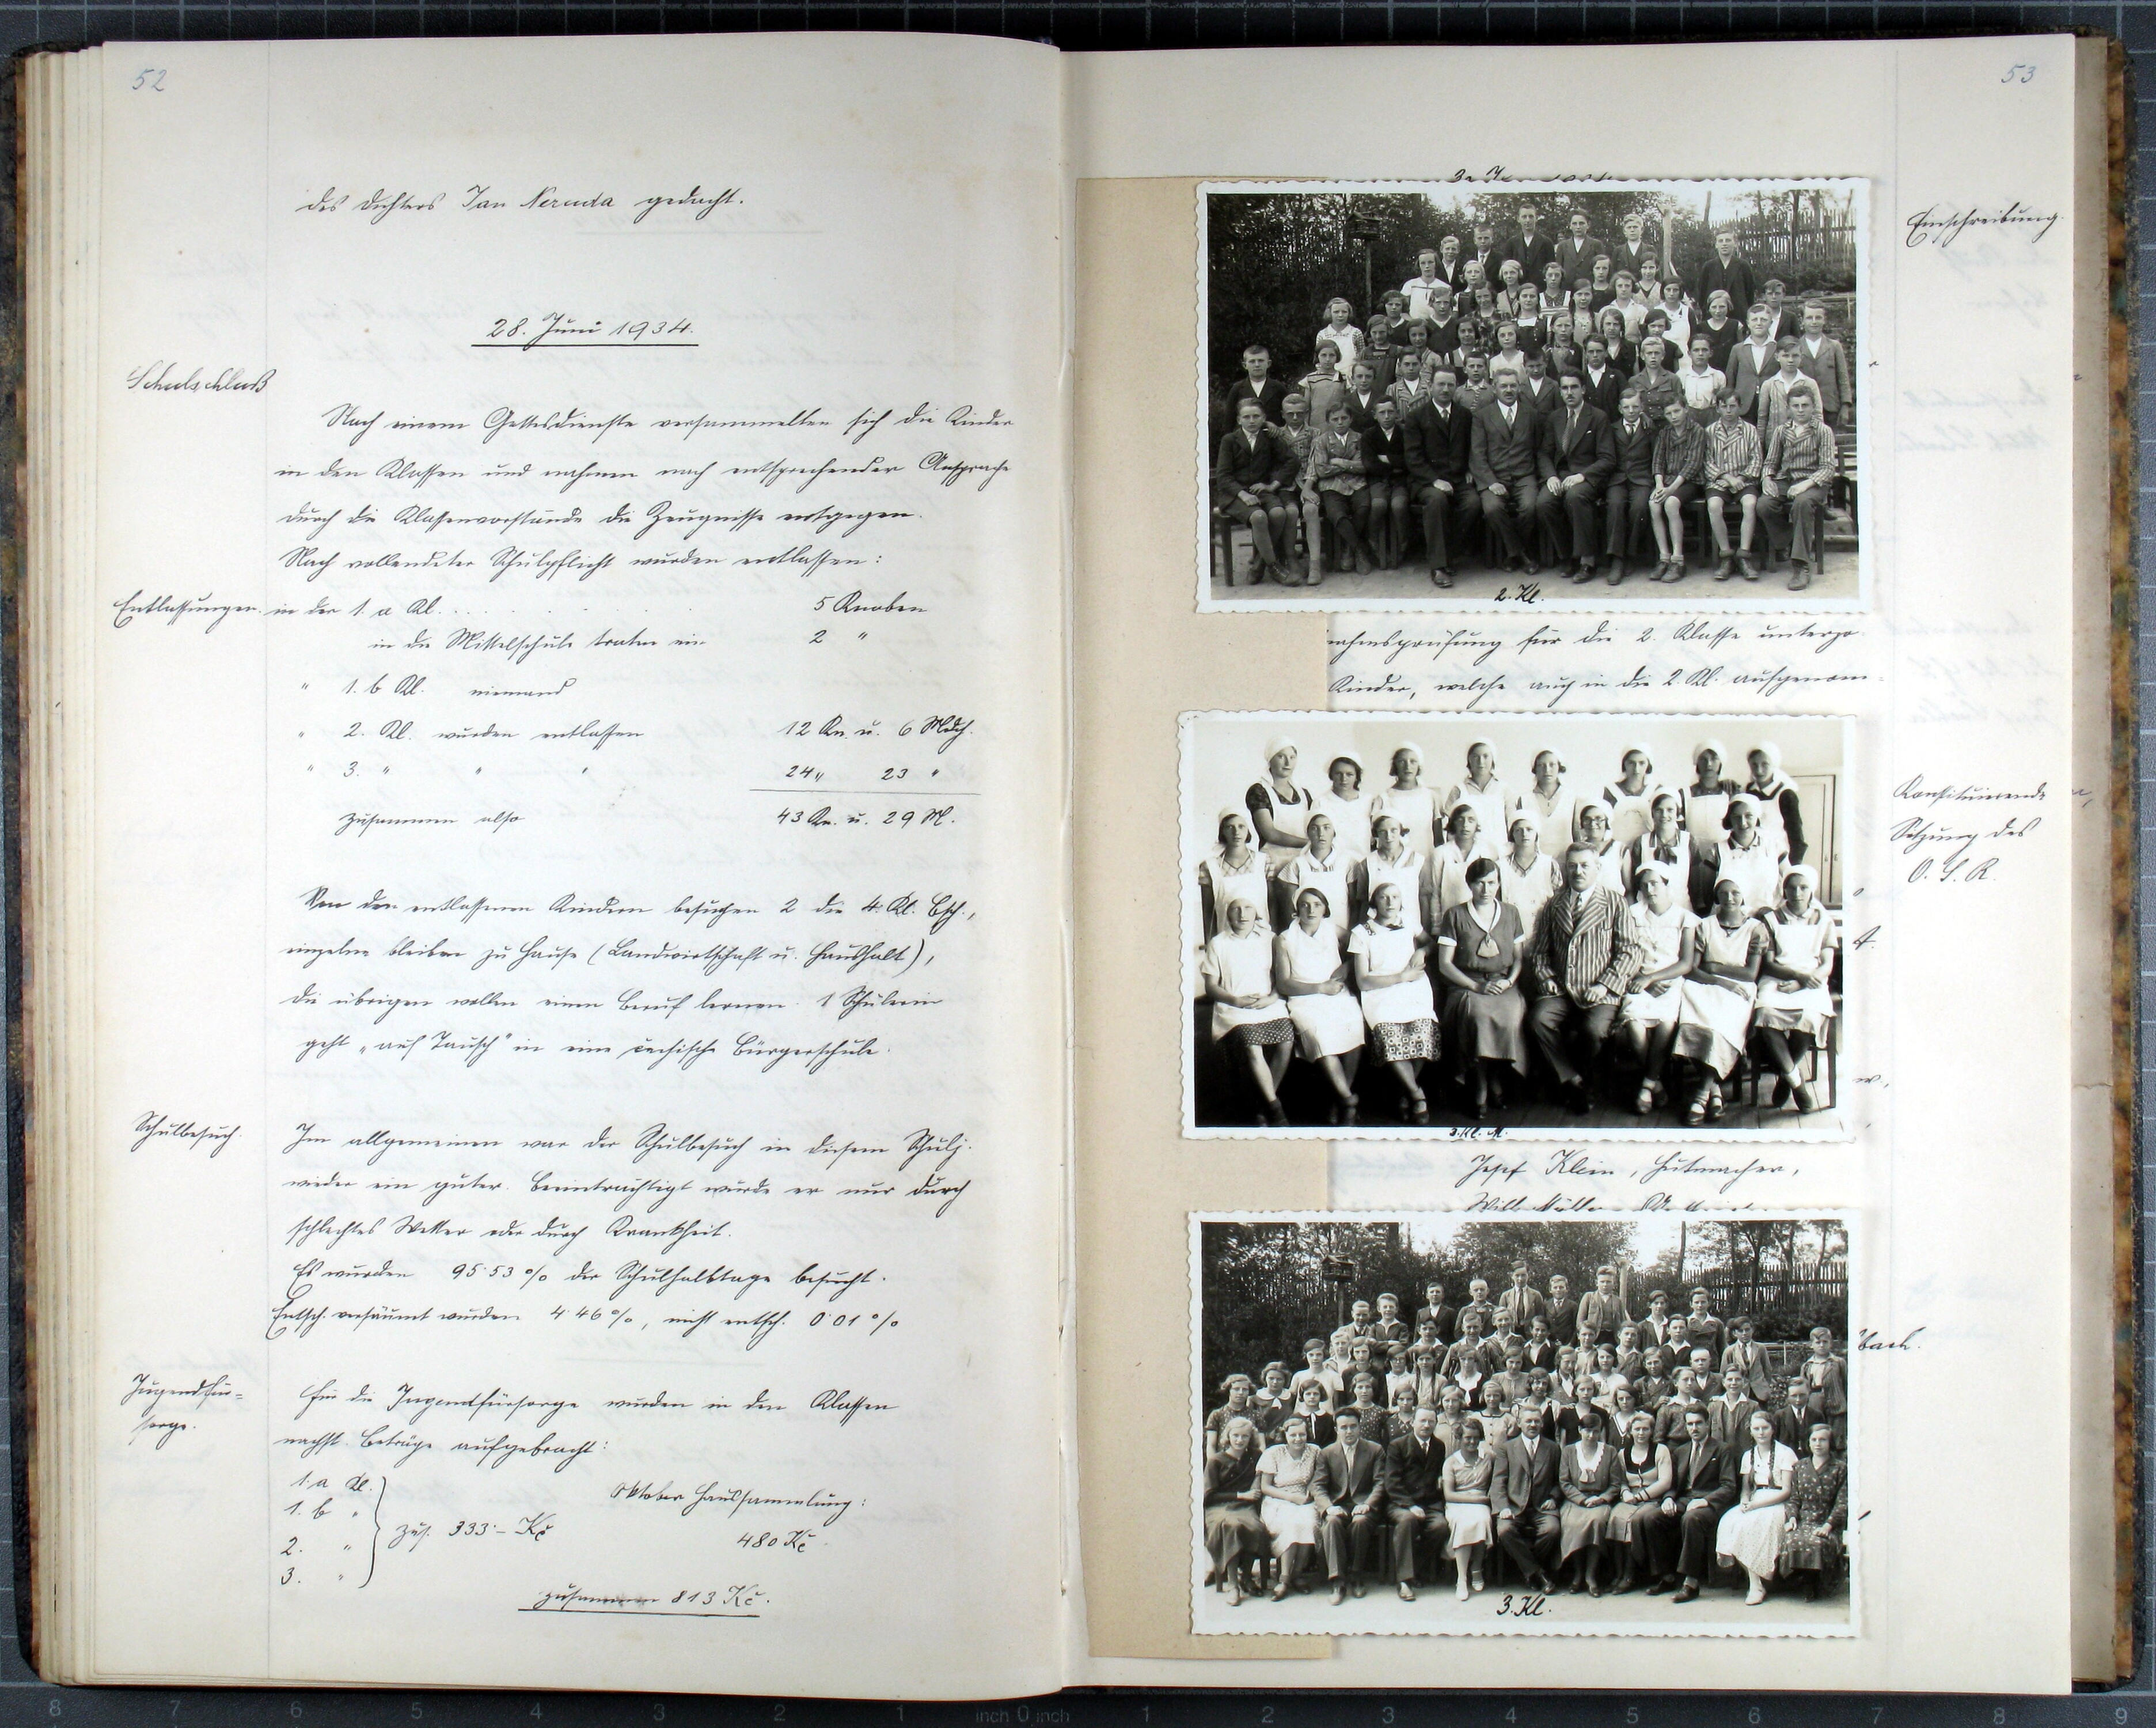 52
des Dichters Jan Neruda gedacht.
28. Juni 1934.
Schulschluß
Nach einem Gottesdienste versammelten sich die Kinder
in den Klassen und nahmen nach entsprechender Ansprache
durch die Klassenvorstände die Zeugnisse entgegen.
Nach vollendeter Schulpflicht wurden entlassen:
Entlassungen. in der 1. a Kl. . . . . . 5 Knaben
in die Mittelschule traten ein 2 "
" 1. b Kl. niemand
" 2. Kl. wurden entlassen 12 Kn. u. 6 Mdch.
" 3. " " " 24 " 23 "
zusammen also 43 Kn. u. 29 M.
Von den entlassenen Kindern besuchen 2 die 4. Kl. Bsch.,
einzelne bleiben zu Hause (Landwirtschaft u. Haushalt),
die übrigen wollen einen Beruf lernen. 1 Schülerin
geht „auf Tausch" in eine čechische Bürgerschule.
Schulbesuch.
Im allgemeinen war der Schulbesuch in diesem Schulj.
wieder ein guter. Beeinträchtigt wurde er nur durch
schlechtes Wetter oder durch Krankheit.
Es wurden 95·53 % der Schulhalbtage besucht.
Entsch. versäumt wurden 4·46 %, nicht entsch. 0·01 %
Jugendfür=
sorge.
Für die Jugendfürsorge wurden in den Klassen
nachst. Beträge aufgebracht:
1. a Kl.
1. b "
2. "
3. "
zus. 333·– Kč
Oktober Haussammlung:
480 Kč
zusammen 813 Kč.
53
Einschreibung.
2. Kl.
nahmsprüfung für die 2. Klasse unterzo
Kinder, welche auch in die 2. Kl. aufgenom=
Konstituierende
Sitzung des
O. S. R.
3. Kl. M.
Josef Klein, Hutmacher,
bach.
3. Kl.